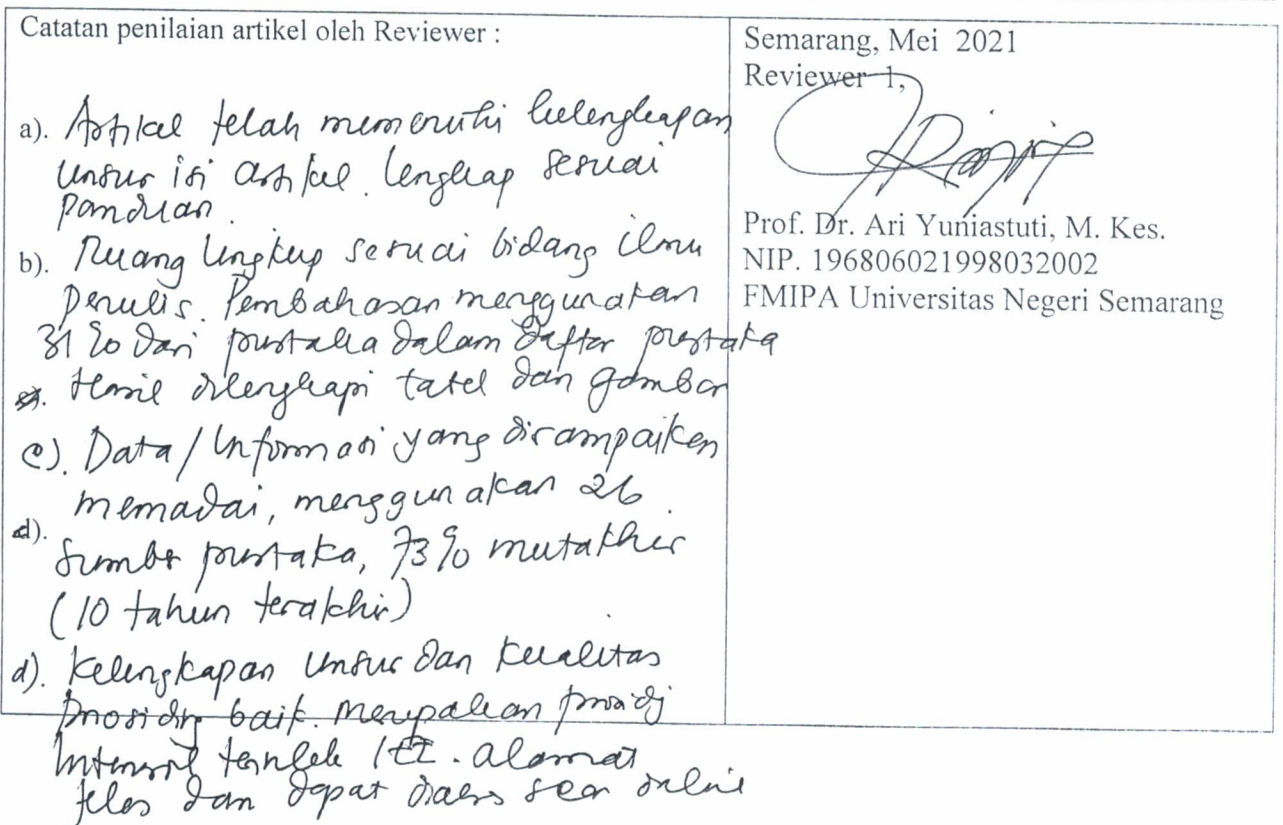 Catatan penilaian artikel oleh Reviewer :
a). Artikel telah memenuhi kelengkapan
unsur isi artikel. lengkap sesuai
panduan.
b). Ruang lingkup sesuai bidang ilmu
penulis. Pembahasan menggunakan
31 % dari pustaka dalam daftar pustaka
Hasil dilengkapi tabel dan gambar
c). Data/Informasi yang disampaikan
memadai, menggunakan 26
d).
sumber pustaka, 73% mutakhir
(10 tahun terakhir)
d). Kelengkapan unsur dan kualitas
prosiding baik. Merupakan prosidg
alamat
jelas dan dapat online
Semarang, Mei 2021
Reviewer 1,
Prof. Dr. Ari Yuniastuti, M. Kes.
NIP. 196806021998032002
FMIPA Universitas Negeri Semarang